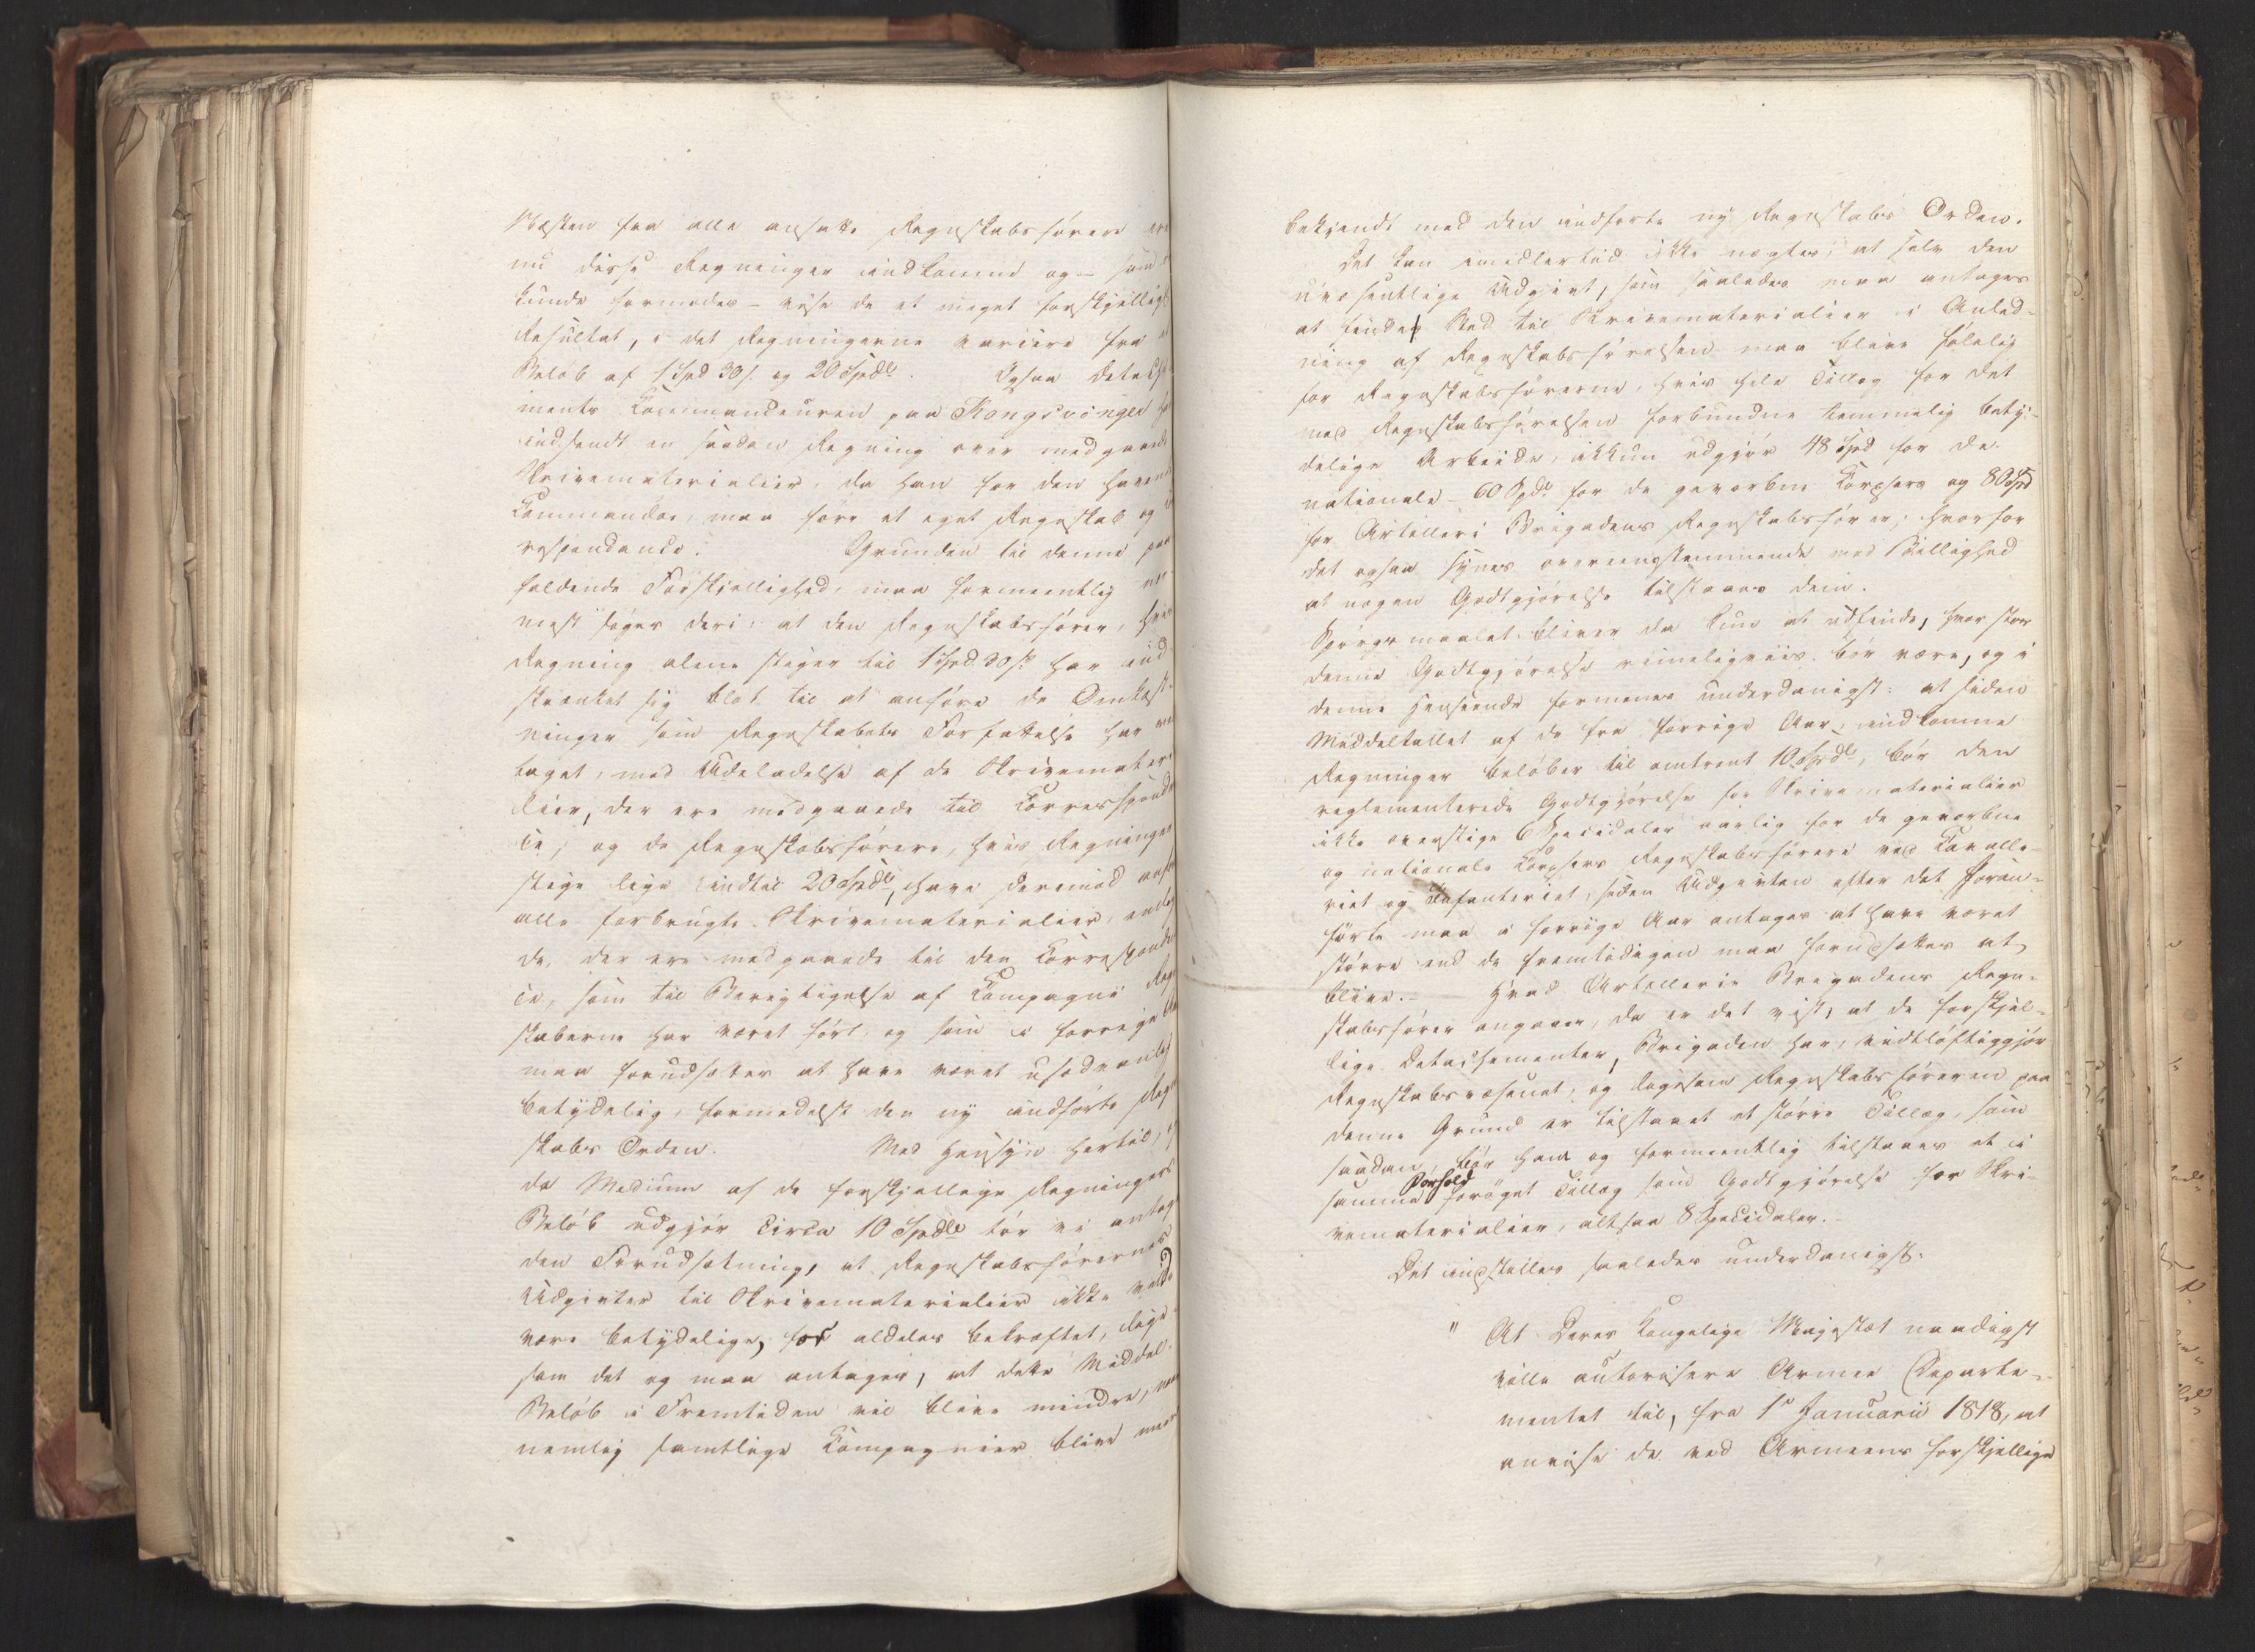 Næsten fra alle ansatte Regnskabsførere ere
nu disse Regninger indkomne og – som
kunde formodes – vise de et meget forskjelligt
Resultat, i det Regningerne variere fra et
Beløb af 1 Spd 30 s. og 20 Spdlr. Ogsaa Detache-
ments Commandeuren paa Kongsvinger har
indsendt en saadan Regning over medgaaede
Skrivematerialier, da han for den havende
Commando, maa føre et eget Regnskab og
respondance. Grunden til denne paa
faldende Forskjellighed, maa formeentlig
mest søges deri, at den Regnskabsfører, hvis
Regning alene stiger til 1 Spd. 30 s. har ind-
skrænket sig blot til at anføre de Omkost-
ninger som Regnskabets Forfattelse har med
taget, med Udeladelse af de Skrivemateria-
lier, der ere medgaaede til Correspondan-
ce; og de Regnskabsførere, hvis Regninger
stige lige indtil 20 Spdlr, have derimod anført
alle forbrugte Skrivematerialier, endog
de, der ere medgaaede til den Correspondan
ce, som til Berigtigelse af Compagnie Regn
skaberne har været ført og som i forrige Aar
maa forudsættes at have været usædvanlig
betydelig, formedelst den ny indførte Regn
skabs Orden. Med Hensyn hertil, og
da Medium af de forskjellige Regningers
Beløb udgjør circa 10 Spdlr tør vi antage
den Forudsætning, at Regnskabsførernes
Udgivter til Skrivematerialier ikke vilde
være betydelige, for aldeles bekræftet, lige-
som det og maa antages, at dette Middel-
Beløb i Fremtiden vil blive mindre, naar
nemlig samtlige Compagnier blive mere
bekjendt med den indførte ny Regnskabs Orden.
Det kan imidlertid ikke nægtes, at selv den
uvæsentlige Udgivt, som saaledes maa antages
at finde Sted til Skrivematerialier i Anled-
ning af Regnskabsførelsen maa blive følelig
for Regnskabsførerne, hvis hele Tillæg for det
med Regnskabsførelsen forbundne temmelig bety-
delige Arbeide, ikkun udgjør 48 Spd for de
nationale – 60 Spdlr for de gevorbne Corpsers og 80 Spd
for Artilleri Brigadens Regnskabsfører; hvorfor
det ogsaa synes overeensstemmende med Billighed
at nogen Godtgjørelse tilstaaes dem.
Spørgsmaalet bliver da kun at udfinde, hvor stor
denne Godtgjørelse rimeligviis bør være, og i
denne Henseende formenes underdanigst: at siden
Middeltallet af de fra forrige Aar indkomne
Regninger beløber til omtrent 10 Spdlr, bør den
reglementerede Godtgjørelse for Skrivematerialier
ikke overstige 6 Speciedaler aarlig for de gevorbne
og nationale Corpsers Regnskabsførere ved Cavalle-
riet og Infanteriet, siden Udgivten efter det foran-
førte maa i forrige Aar antages at have været
større end de fremtidigen maa forudsættes at
blive. – Hvad Artillerie Brigadens Regn-
skabsfører angaaer, da er det vist, at de forskjel-
lige Detachementer, Brigaden har, vidtløftiggjør
Regnskabsvæsenet, og ligesom Regnskabsføreren paa
denne Grund er tilstaaet et større Tillæg, som
saadan, bør ham og formeentlig tilstaaes et i
samme Forhold forøget Tillæg som Godtgjørelse for Skri-
vematerialier, altsaa 8 Speciedaler. –
Det indstilles saaledes underdanigst:
" At Deres Kongelige Majestæt naadigst
ville autorisere Armee Departe-
mentet til, fra 1te Januarii 1818, at
anvise de ved Armeens forskjellige